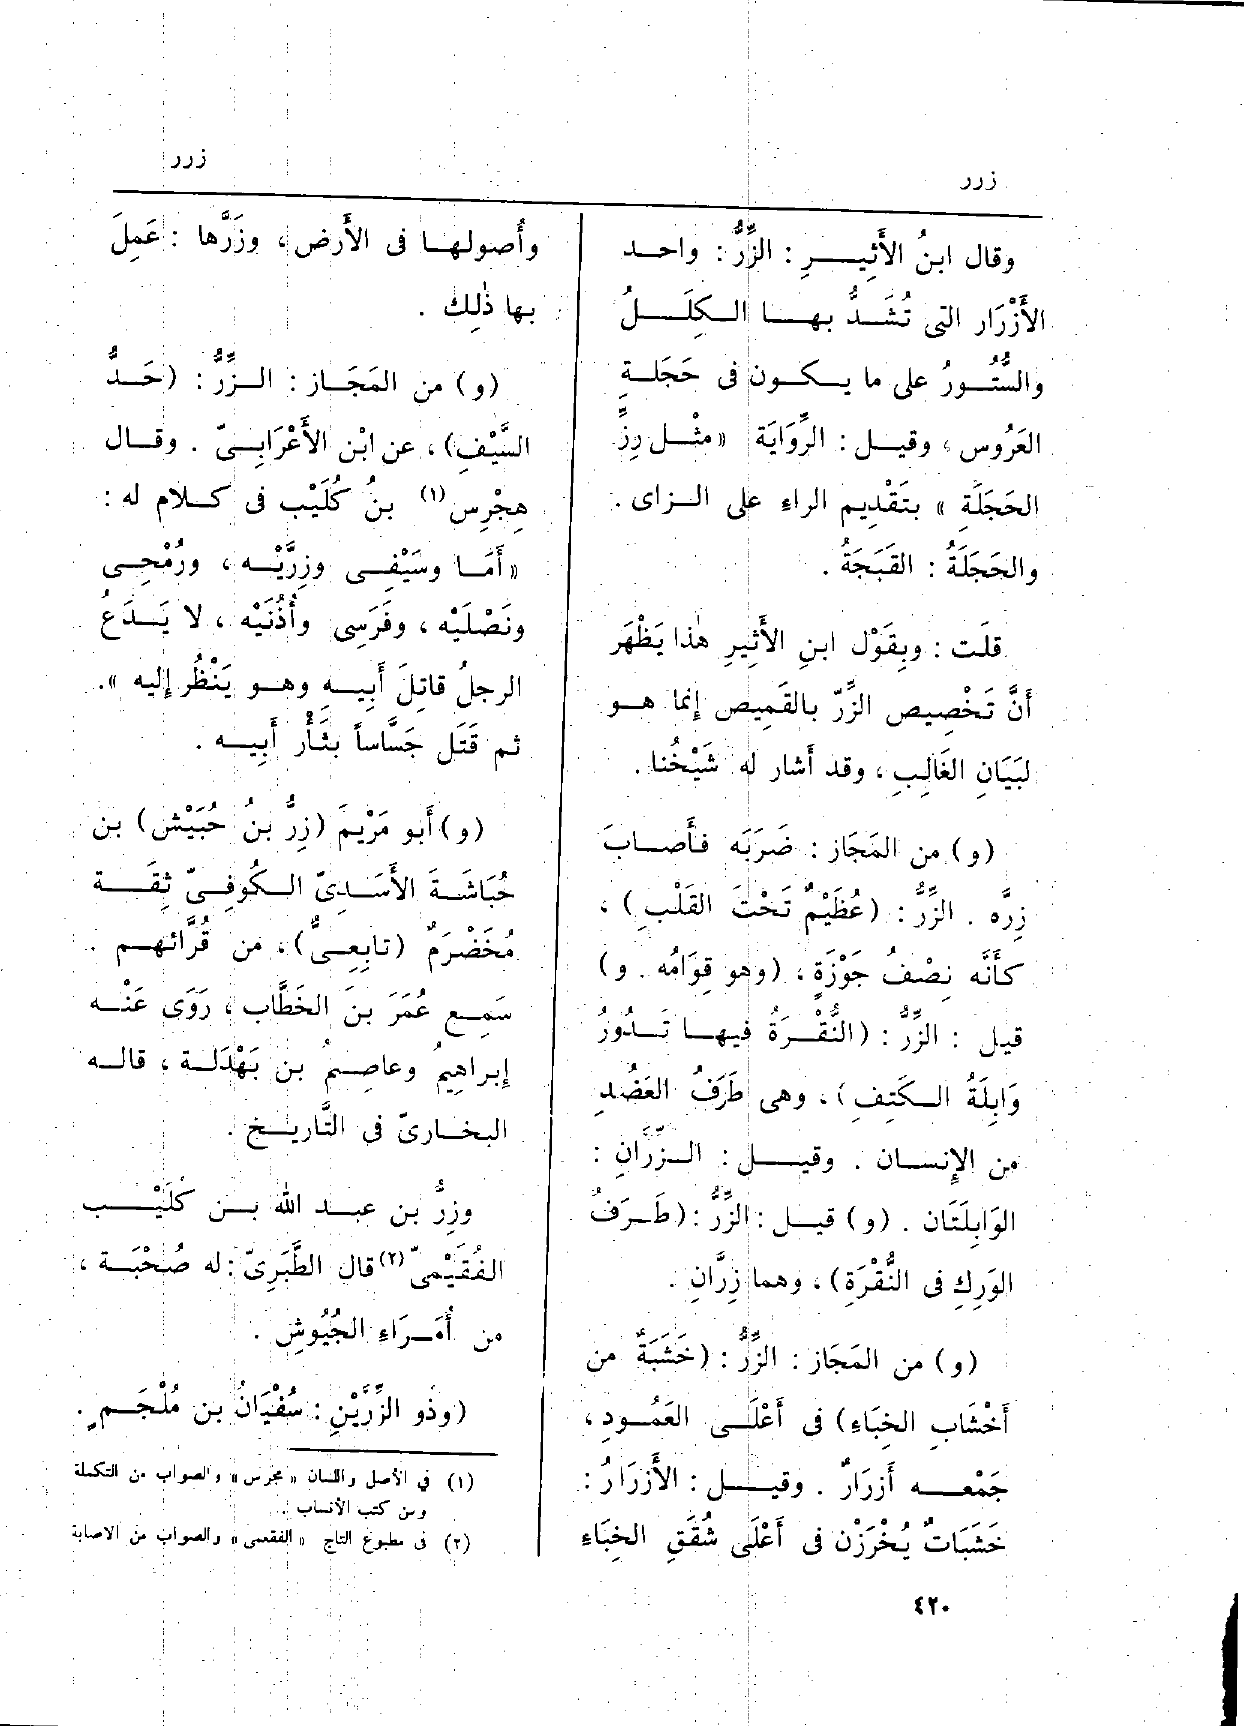 زرر
وقال ابنُ الأَثِيـرِ : الزِّرُّ : واحد
الأَزْرَار التى تُشَدُّ بهـا الـكِلَـلُ
والسُّتُورُ على ما يـكون فى حَجَلة
العَرُوس ، وقيـل : الرِّوَايَة « مثْـل رِزِّ
الحَجَلَةِ » بتَقْدِيم الراء على الـزاى .
والحَجَلَةُ : القَبَجَةُ .
قلَت : وبِقَوْل ابنِ الأَثِيرِ هٰذا يَظْهَر
أَنَّ تَخْصِيص الزِّرّ بالقَمِيص إِنما هـو
لبَيَانِ الغَالِبِ ، وقد أَشار له شَيْخُنا .
(و) من المَجَاز : ضَرَبَه فأَصـابَ
زِرَّه . الزِّرُّ : (عُظَيْمٌ تَحْتَ القَلْبِ) ،
كأَنَّه نِصْفُ جَوْزَةٍ ، (وهو قِوَامُه . و)
قيل : الزِّرُّ : (النُّقْـرَةُ فيهـا تَـدُورُ
وَابِلَةُ الـكَتِفِ) ، وهى طَرَفُ العَضُدِ
من الإِنسـان . وقيـل : الـزِّرَّانِ :
الوَابِلَتَان . (و) قيـل : الزِّرُّ : (طَـرَفُ
الوَرِكِ فى النُّقْرَةِ) ، وهما زِرَّانِ .
(و) من المَجَاز : الزِّرُّ : (خَشَبَةٌ من
أَخْشَابِ الخِبَاءِ) فى أَعْلَـى العَمُـودِ ،
جَمْعـه أَزرَارٌ . وقيـل : الأَزرَارُ :
خَشَبَاتٌ يُخْرَزْن فى أَعْلَى شُقَقِ الخِبَاءِ
زرر
وأُصولهـا فى الأَرض ، وزَرَّها : عَمِلَ
بها ذٰلِك .
(و) من المَجَـاز : الـزِّرُّ : (حَـدُّ
السَّيْفِ) ، عن ابْن الأَعْرَابِـىّ . وقـال
هِجْرِس (١) بنُ كُلَيْب فى كـلام له :
« أَمَـا وسَيْفِـى وزِرَّيْـه ، ورُمْحِـى
ونَصْلَيْه ، وفَرَسِى وأُذُنَيْه ، لا يَـدَعُ
الرجلُ قاتِلَ أَبِيـهِ وهـو يَنْظُر إِليه ».
ثم قَتَل جَسَّاساً بثَأْر أَبِيـه .
(و) أَبو مَرْيمَ (زِرُّ بنُ حُبَيْش) بن
حُبَاشَةَ الأَسَـدِىّ الـكُوفِـىّ ثِقَـة
مُخَضْرَمٌ (تابِعِىٌّ) ، من قُرَّائهـم .
سَمِـع عُمَرَ بنَ الخَطَّاب ، رَوَى عَنْـه
إِبراهِيمُ وعاصِـمُ بن بَهْدَلَـة ، قالـه
البخـارىّ فى التَّاريـخ .
وزِرُّ بن عبـد الله بـن كُلَيْـب
الفُقَيْمىّ (٢) قال الطَّبَرِىّ : له صُحْبَـة ،
من أُمَـرَاءِ الجُيُوش .
(وذُو الزِّرَّيْنِ : سُفْيَانُ بن مُلْجَـمٍ .
(١) في الأصل واللسان « مجرس » والصواب من التكملة
ومن كتب الأنساب .
(٢) فى مطبوع التاج « الفقعسى » والصواب من الاصابة
٤٢٠